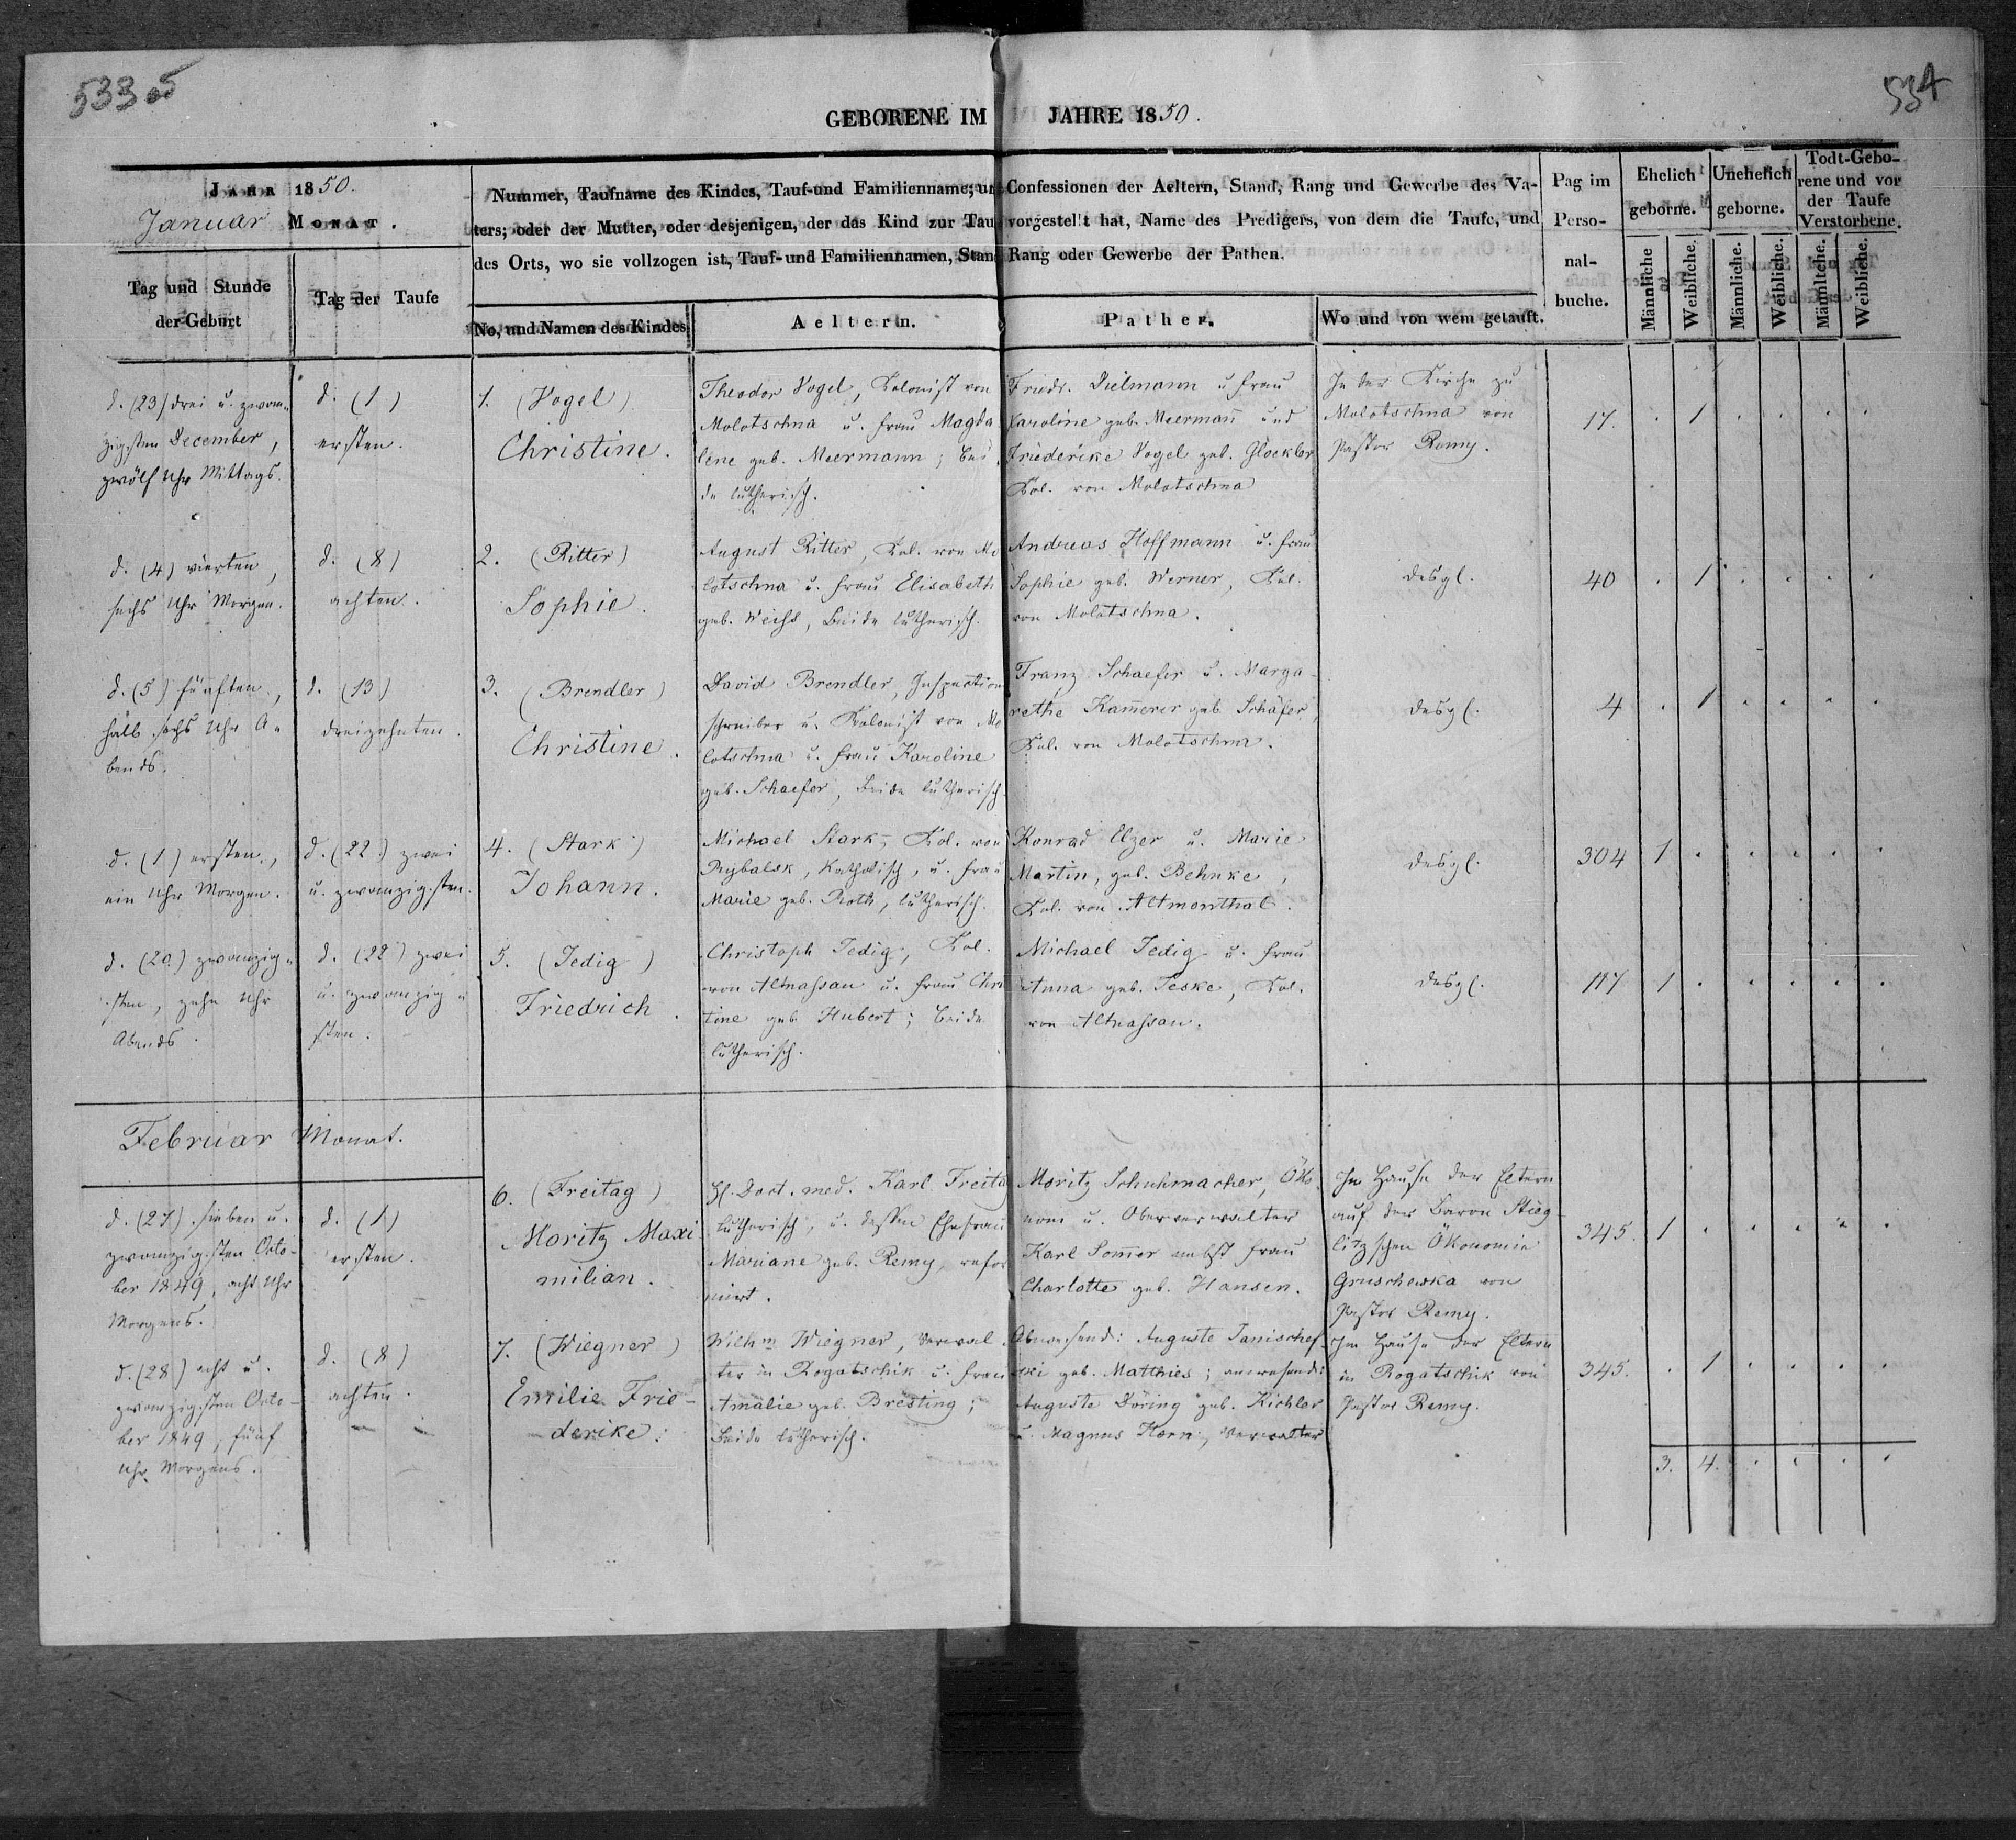 533
534
GEBORENE IM JAHRE 1850.
JAHR 1850.
Januar MONAT.
Tag und Stunde
der Geburt
Tag der Taufe
Nummer, Taufname des Kindes, Tauf-und Familienname; un Confessionen der Aeltern, Stand, Rang und Gewerbe des Va-
ters; oder der Mutter, oder desjenigen, der das Kind zur Tau vorgestel't hat, Name des Predigers, von dem die Taufe, und
des Orts, wo sie vollzogen ist, Tauf-und Familiennamen, Stan Rang oder Gewerbe der Pathen.
No, und Namen des Kindes
Aeltern.
Pathen.
Wo und von wem getauft.
Pag im
Perso-
nal-
buche.
Ehelich
geborne.
Unehelich
geborne.
Todt-Gebo-
rene und vor
der Taufe
Verstorbene.
Männliche
Weibliche.
Männliche.
Weibliche.
Männliche.
Weibliche.
d. (23) drei u. zwan-
zigsten December,
zwölf Uhr Mittags.
d. (1)
ersten.
1. (Vogel)
Christine.
Theodor Vogel, Kolonist von
Molotschna u. Frau Magda
lene geb. Meermann; bei
de lutherisch.
Friedr. Dielmann u. Frau
Karoline geb. Meermañ und
Friederike Vogel geb. Glöckler
Kol. von Molotschna
In der Kirche zu
Molotschna von
Pastor Remy.
17. . 1 . . . .
d. (4) vierten,
sechs Uhr Morgen.
d. (8)
achten.
2. (Ritter)
Sophie.
August Ritter, Kol. von Mo
lotschna u. Frau Elisabeth
geb. Weiss, Beide lutherisch.
Andreas Hoffmann u. Frau
Sophie geb. Werner, Kol.
von Molotschna.
desgl.
40 . 1 . . . .
d. (5) fünften,
halb sechs Uhr A-
bends.
d. (13)
dreizehnten.
3. (Brendler)
Christine.
David Brendler, Inspection
schreiber u. Kolonist von Mo
lotschna u. Frau Karoline
geb. Schaefer, Beide lutherisch.
Franz Schaefer u. Marga-
rethe Kam̃erer geb. Schäfer,
Kol. von Molotschna.
desgl.
4 . 1 . . . .
d. (1) ersten,
ein Uhr Morgen.
d. (22) zwei
u. zwanzigsten.
4. (Stark)
Johann.
Michael Stark, Kol. von
Rybalsk, Katholisch, u. Frau
Marie geb. Roth, lutherisch.
Konrad Elzer u. Marie
Martin, geb. Behnke,
Kol. von Altmonthal.
desgl.
304 1 . . . . .
d. (20) zwanzig-
sten, zehn Uhr
Abends.
d. (22) zwei
u. zwanzig-
sten.
5. (Jedig)
Friedrich.
Christoph Jedig, Kol.
von Altnassau u. Frau Chri
tine geb. Hubert; Beide
lutherisch.
Michael Jedig u. Frau
Anna geb. Teske, Kol.
von Altnassau.
desgl.
117 1 . . . . .
Februar Monat.
d. (27) sieben u.
zwanzigsten Octo-
ber 1849, acht Uhr
Morgens.
d. (1)
ersten.
6. (Freitag)
Moritz Maxi
milian.
H. Doct. med. Karl Freita
lutherisch, u. dessen Ehefrau
Mariane geb. Remy, refor
mirt.
Moritz Schuhmacher, Öko
nom u. Oberverwalter
Karl Som̃er nebst Frau
Charlotte geb. Hansen.
Im Hause der Eltern
auf der Baron Stieg-
litz'schen Ökonomie
Gruschewka von
Pastor Remy.
345. 1 . . . . .
d. (28) acht u.
zwanzigsten Octo-
ber 1849, fünf
Uhr Morgens.
d. (8)
achten.
7. (Wiegner)
Emilie Frie-
derike.
Wilhm Wiegner, Verwal-
ter in Rogatschik u. Frau
Amalie geb. Bresting;
Beide lutherisch.
Abwesend: Auguste Janischef-
ski geb. Matthies; anwesend:
Auguste Döring geb. Kichler
u. Magnus Horn, Verwalter
Im Hause der Eltern
in Rogatschik von
Pastor Remy.
345. . 1 . . . .
3. 4. . . . .